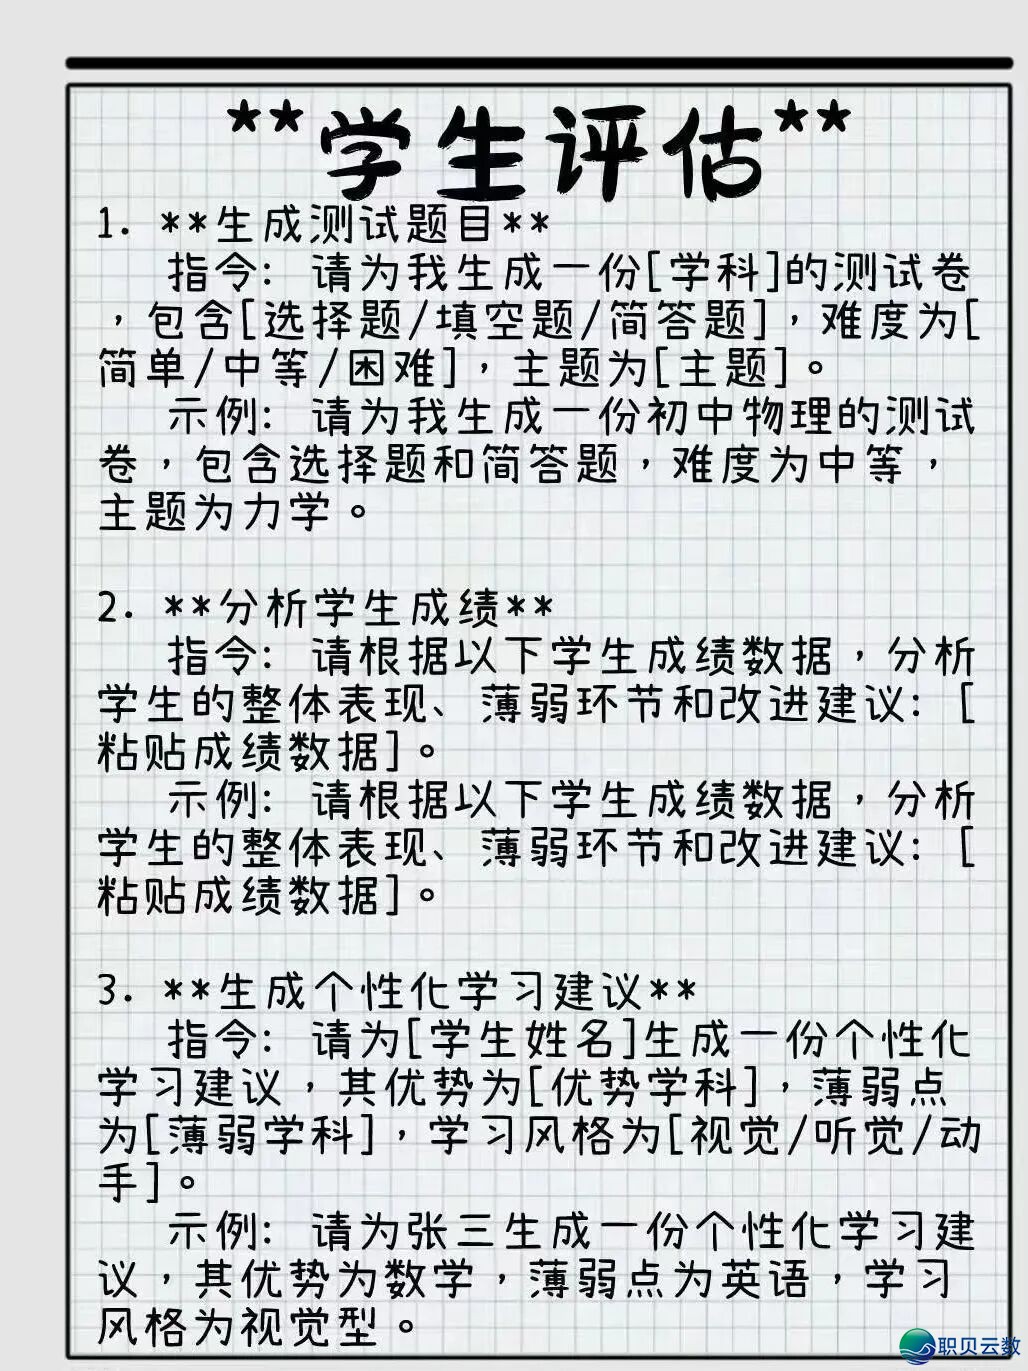 **学生评估**
1. **生成测试题目**
指令: 请为我生成一份[学科]的测试卷
，包含[选择题/填空题/简答题]，难度为[
简单/中等/困难]，主题为[主题]。
示例: 请为我生成一份初中物理的测试
卷，包含选择题和简答题，难度为中等，
主题为力学。
2. **分析学生成绩**
指令: 请根据以下学生成绩数据，分析
学生的整体表现、薄弱环节和改进建议: [
粘贴成绩数据]。
示例: 请根据以下学生成绩数据，分析
学生的整体表现、薄弱环节和改进建议: [
粘贴成绩数据]。
3. **生成个性化学习建议**
指令: 请为[学生姓名]生成一份个性化
学习建议，其优势为[优势学科]，薄弱点
为[薄弱学科]，学习风格为[视觉/听觉/动
手]。
示例: 请为张三生成一份个性化学习建
议，其优势为数学，薄弱点为英语，学习
风格为视觉型。
职贝云数